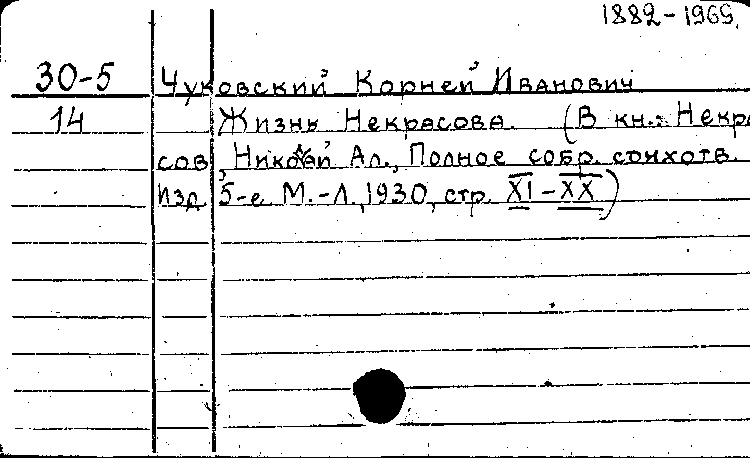 1882-1969.
30-5 Чуковский Корней Иванович
14 Жизнь Некрасова. (В кн.: Некра
сов, Николай Ал., Полное собр. стихотв.
Изд. 5-е М.-Л., 1930, стр. XI-XX)